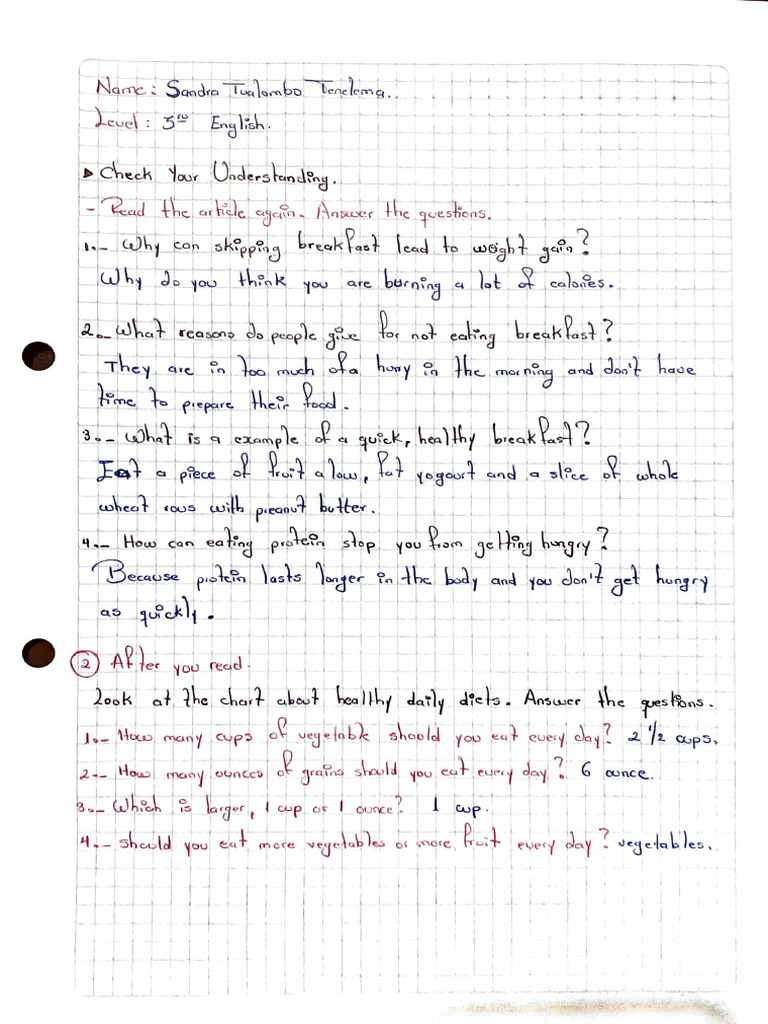 Name: Sandra Tualombo Tenelema.
Level: 3ro English.
▸ Check Your Understanding.
- Read the article again. Answer the questions.
1.- Why can skipping breakfast lead to weight gain?
Why do you think you are burning a lot of calories.
2.- What reasons do people give for not eating breakfast?
They are in too much of a hurry in the morning and don't have
time to prepare their food.
3.- What is a example of a quick, healthy breakfast?
Eat a piece of fruit a low, fat yogourt and a slice of whole
wheat rous with preanut butter.
4.- How can eating protein stop you from getting hungry?
Because protein lasts longer in the body and you don't get hungry
as quickly.
2 After you read.
Look at the chart about healthy daily diets. Answer the questions.
1.- How many cups of vegetable should you eat every day? 2 1/2 cups.
2.- How many ounces of grains should you eat every day? 6 ounce.
3.- Which is larger, 1 cup or 1 ounce? 1 cup.
4.- Should you eat more vegetables or more fruit every day? vegetables.